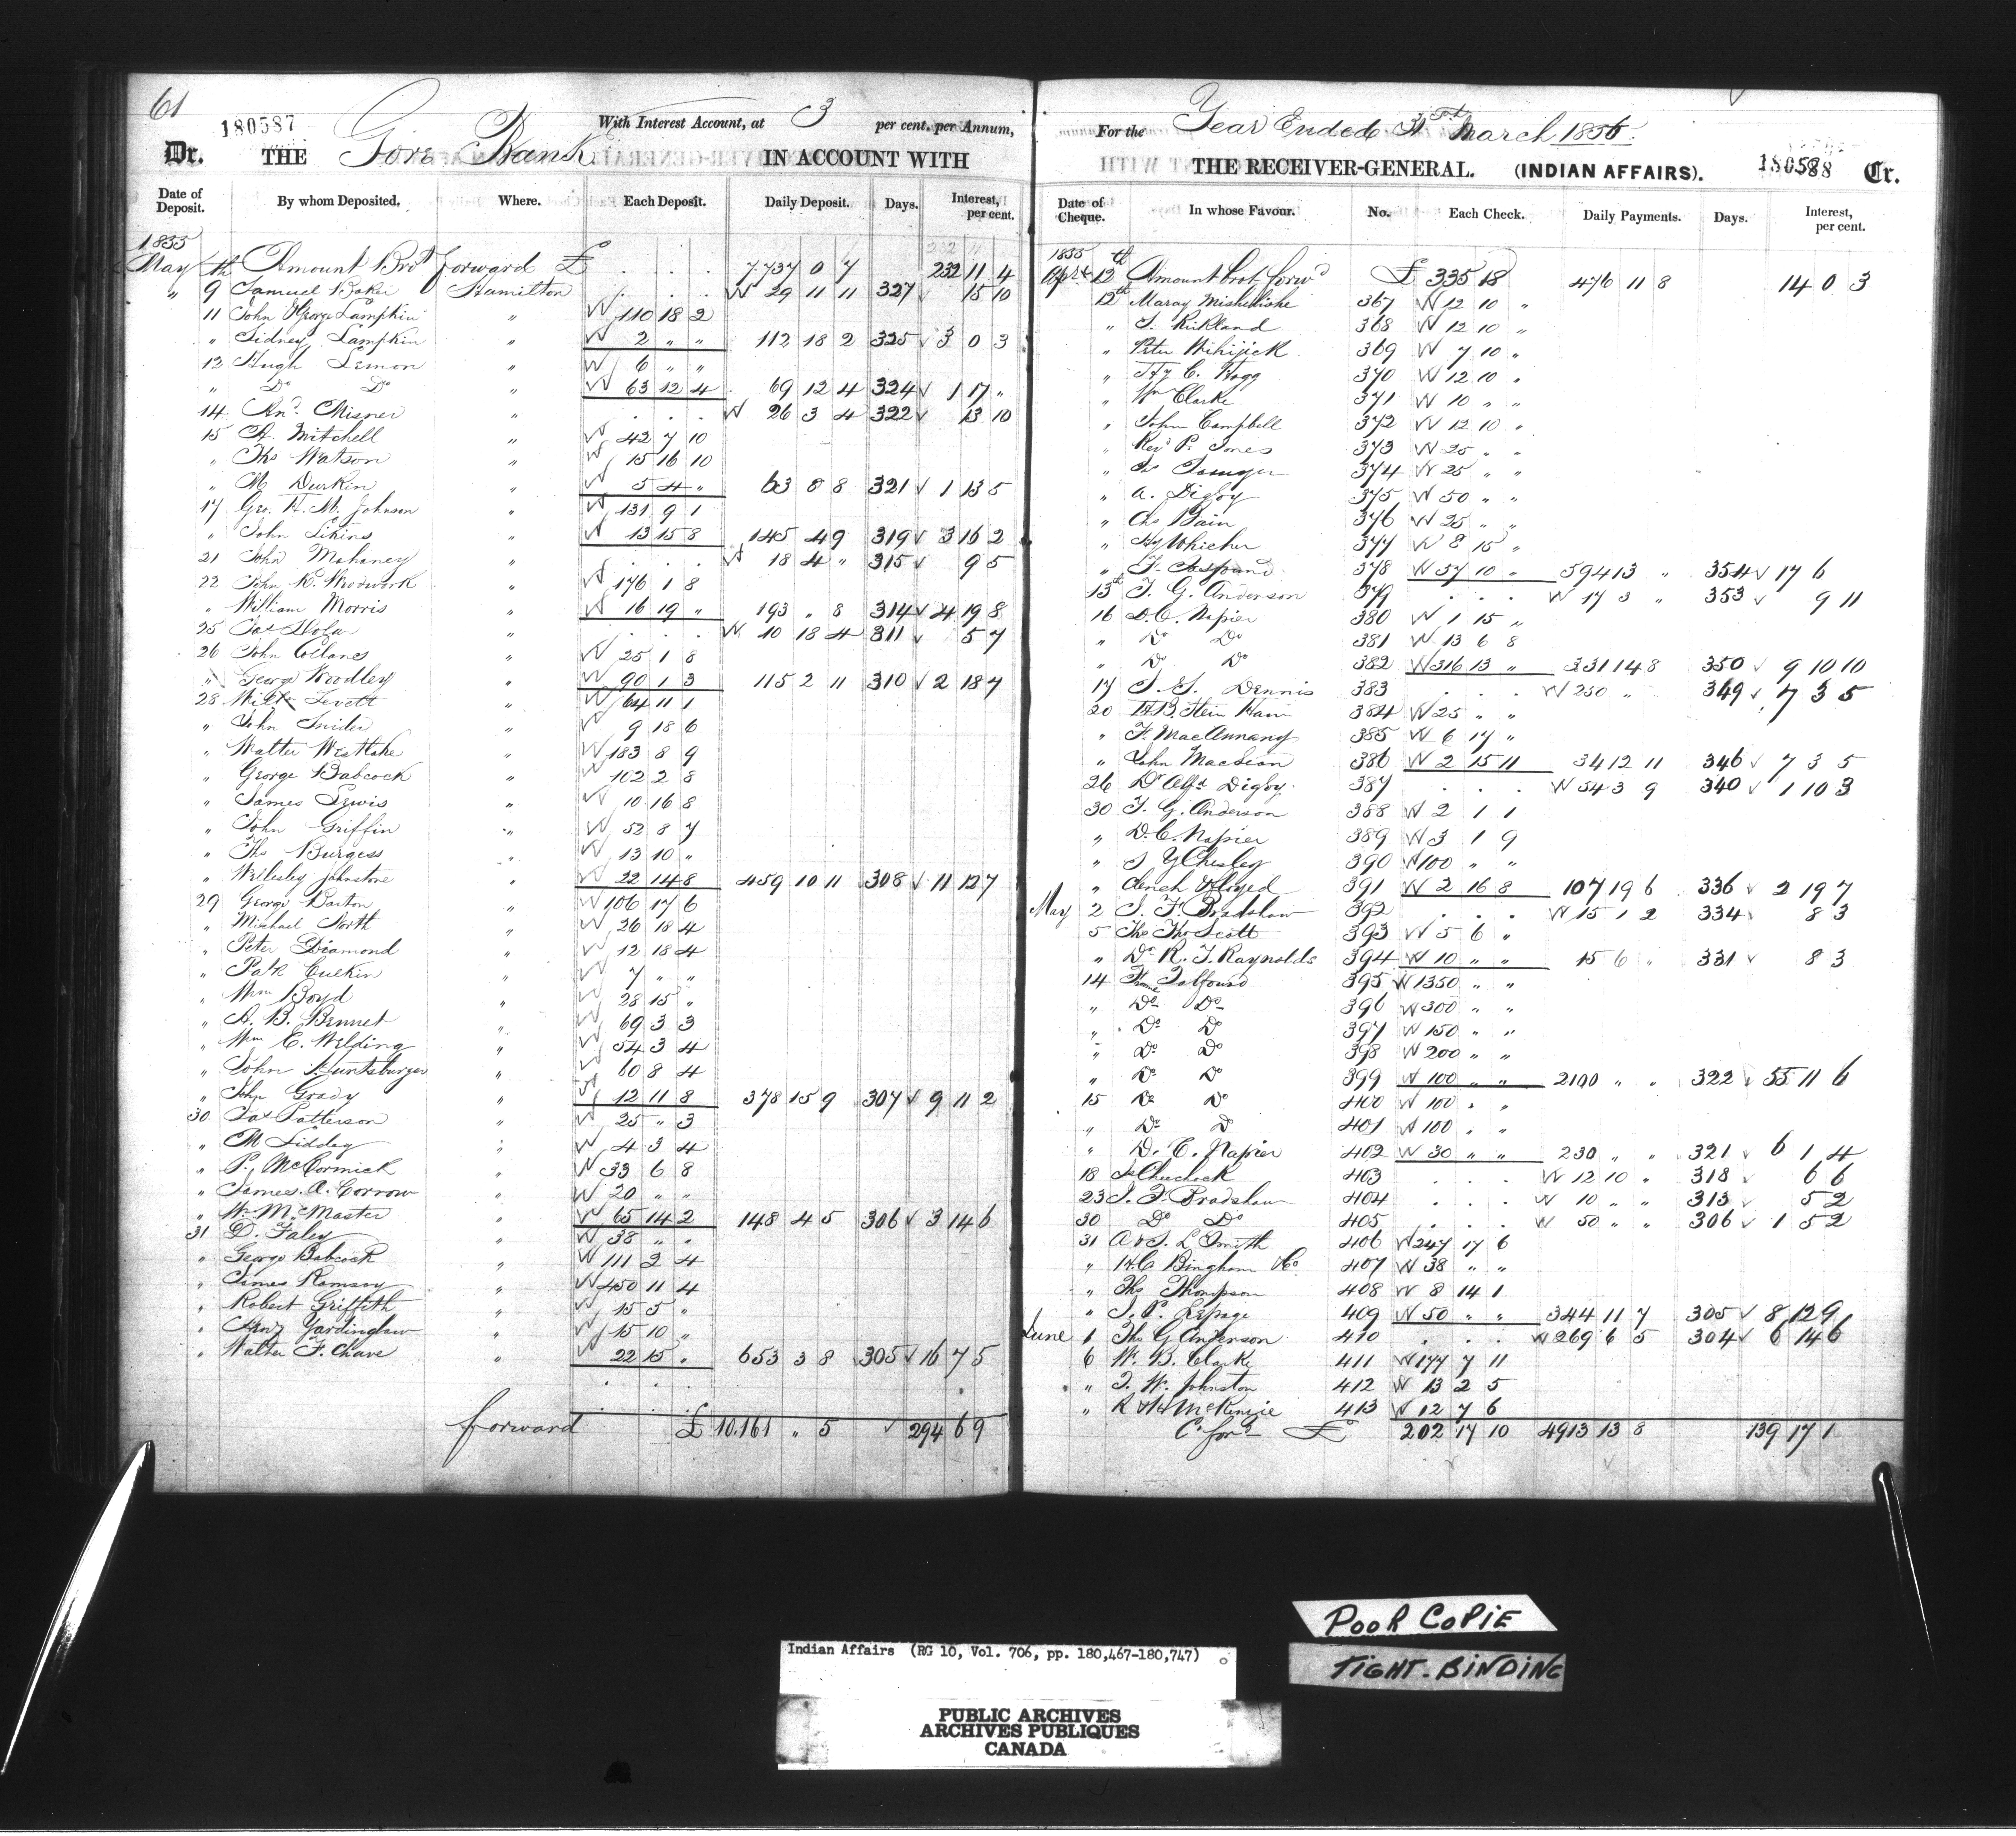 61
180587
With Interest Account, at 3 per cent. per Annum,
Dr. THE Gore Bank IN ACCOUNT WITH
Date of Deposit. By whom Deposited. Where. Each Deposit. Daily Deposit. Days. Interest, per cent.
1855
May th Amount Brot forward £ . . . 7,737 0 7 232 11 4
" 9 Samuel Baker Hamilton . . . 29 11 11 327 15 10
11 John George Lampkin " 110 18 2
" Sidney Lampkin " 2 " " 112 18 2 325 3 0 3
12 Hugh Lemon " 6 " "
" Do Do " 63 12 4 69 12 4 324 1 17 "
14 And. Misner " . . . 26 3 4 322 13 10
15 A. Mitchell " 42 7 10
" Thos Watson " 15 16 10
" M Durkin " 5 4 " 63 8 8 321 1 13 5
17 Geo. H. M. Johnson " 131 9 1
" John Likins " 13 15 8 145 4 9 319 3 16 2
21 John Mahaney " . . . 18 4 " 315 9 5
22 John K. Woodwork " 176 1 8
" William Morris " 16 19 " 193 " 8 314 4 19 8
25 Jas " . . . 10 18 4 311 5 7
26 John " 25 1 8
" George Woodley " 90 1 3 115 2 11 310 2 18 7
28 Levett " 64 11 1
" John Snider " 9 18 6
" Walter Westlake " 183 8 9
" George Babcock " 102 2 8
" James Lewis " 10 16 8
" John Griffin " 52 8 7
" Thos Burgess " 13 10 "
" Wellesley Johnstone " 22 14 8 459 10 11 308 11 12 7
29 George Barton " 106 17 6
" Michael North " 26 18 4
" Peter Diamond " 12 18 4
" Patk Culkin " 7 " "
" Wm Boyd " 28 15 "
" A. B. Bennet " 69 3 3
" Wm E. Welding " 54 3 4
" John Huntsburger " 60 8 4
" John Grady " 12 11 8 378 15 9 307 9 11 2
30 Jas Patterson " 25 " 3
" M Liddey " 4 3 4
" P. McCormick " 33 6 8
" James. A. Corrow " 20 " "
" W. McMaster " 65 14 2 148 4 5 306 3 14 6
31 D. Faley " 38 " "
" George Babcock " 111 2 4
" James Ramsay " 450 11 4
" Robert Griffith " 15 5 "
" Henry Yardinglaw " 15 10 "
" Walter F. Chave " 22 15 " 653 3 8 305 16 7 5
forward £ 10,161 " 5 294 6 9
For the Year Ended 31st March 1856.
THE RECEIVER-GENERAL. (INDIAN AFFAIRS). 180588 Cr.
Date of Cheque. In whose Favour. No. Each Check. Daily Payments. Days. Interest, per cent.
1855
Apl 12th Amount brot forwd £ 335 18 476 11 8 14 0 3
12th Maray Mishiliske 367 12 10 "
" J. Kirkland 368 12 10 "
" Peter 369 7 10 "
" Hy C. Hogg 370 12 10 "
" Wm Clarke 371 10 " "
" John Campbell 372 12 10 "
" Revd P. Jones 373 25 " "
" 374 25 " "
" A. Digby 375 50 " "
" Chs Bain 376 25 " "
" Hy Whicher 377 8 15 "
" 378 57 10 " 594 13 " 354 17 6
13th T. G. Anderson 379 . . . 17 3 " 353 9 11
16 D. C. Napier 380 1 15 "
" Do Do 381 13 6 8
" Do Do 382 316 13 " 331 14 8 350 9 10 10
17 J. S. Dennis 383 . . . 250 " 349 7 3 5
20 384 25 " "
" F. MacAnnany 385 6 17 "
" John MacLean 386 2 15 11 34 12 11 346 7 3 5
26 Dr Alfd Digby 387 . . . 54 3 9 340 1 10 3
30 T. G. Anderson 388 2 1 1
" D. C. Napier 389 3 1 9
" S Y Chesley 390 100 " "
" 391 2 16 8 107 19 6 336 2 19 7
May 2 J. F. Bradshaw 392 . . . 15 1 2 334 8 3
5 Thos Scott 393 5 6 "
" Dr R. T. Raynolds 394 10 " " 15 6 " 331 8 3
14 Talfourd 395 1350 " "
" Do Do 396 300 " "
" Do Do 397 150 " "
" Do Do 398 200 " "
" Do Do 399 100 " " 2100 " " 322 55 11 6
15 Do Do 400 100 " "
" Do Do 401 100 " "
" D. C. Napier 402 30 " " 230 " " 321 6 1 4
18 403 . . . 12 10 " 318 6 6
23 J. F. Bradshaw 404 . . . 10 " " 313 5 2
30 Do Do 405 . . . 50 " " 306 1 5 2
31 A & S. L Smith 406 247 17 6
" H. C Bingham & Co 407 38 " "
" Thos Thompson 408 8 14 1
" J. P. Lepage 409 50 " " 344 11 7 305 8 12 9
June 1 Thos G Anderson 410 . . . 269 6 5 304 6 14 6
6 W. B. Clarke 411 177 7 11
" J. W. Johnston 412 13 2 5
" McKenzie 413 12 7 6
Cd forwd £ 202 17 10 4913 13 8 139 17 1
POOR COPIE
TIGHT-BINDING
Indian Affairs (RG 10, Vol. 706, pp. 180,467-180,747)
PUBLIC ARCHIVES
ARCHIVES PUBLIQUES
CANADA